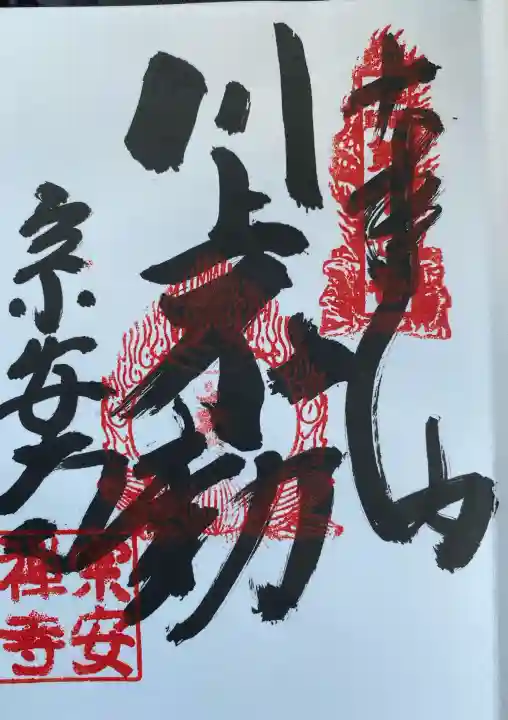 川上不動
宗安寺
宗安
禅寺